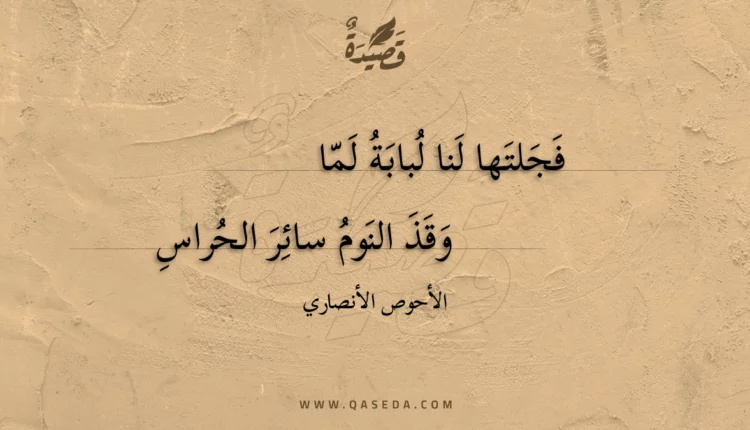 قَصِيْدَةٌ
فَجَلتَها لَنا لُبابَةُ لَمّا
وَقَذَ النَومُ سائِرَ الحُراسِ
الأحوص الأنصاري
WWW.QASEDA.COM